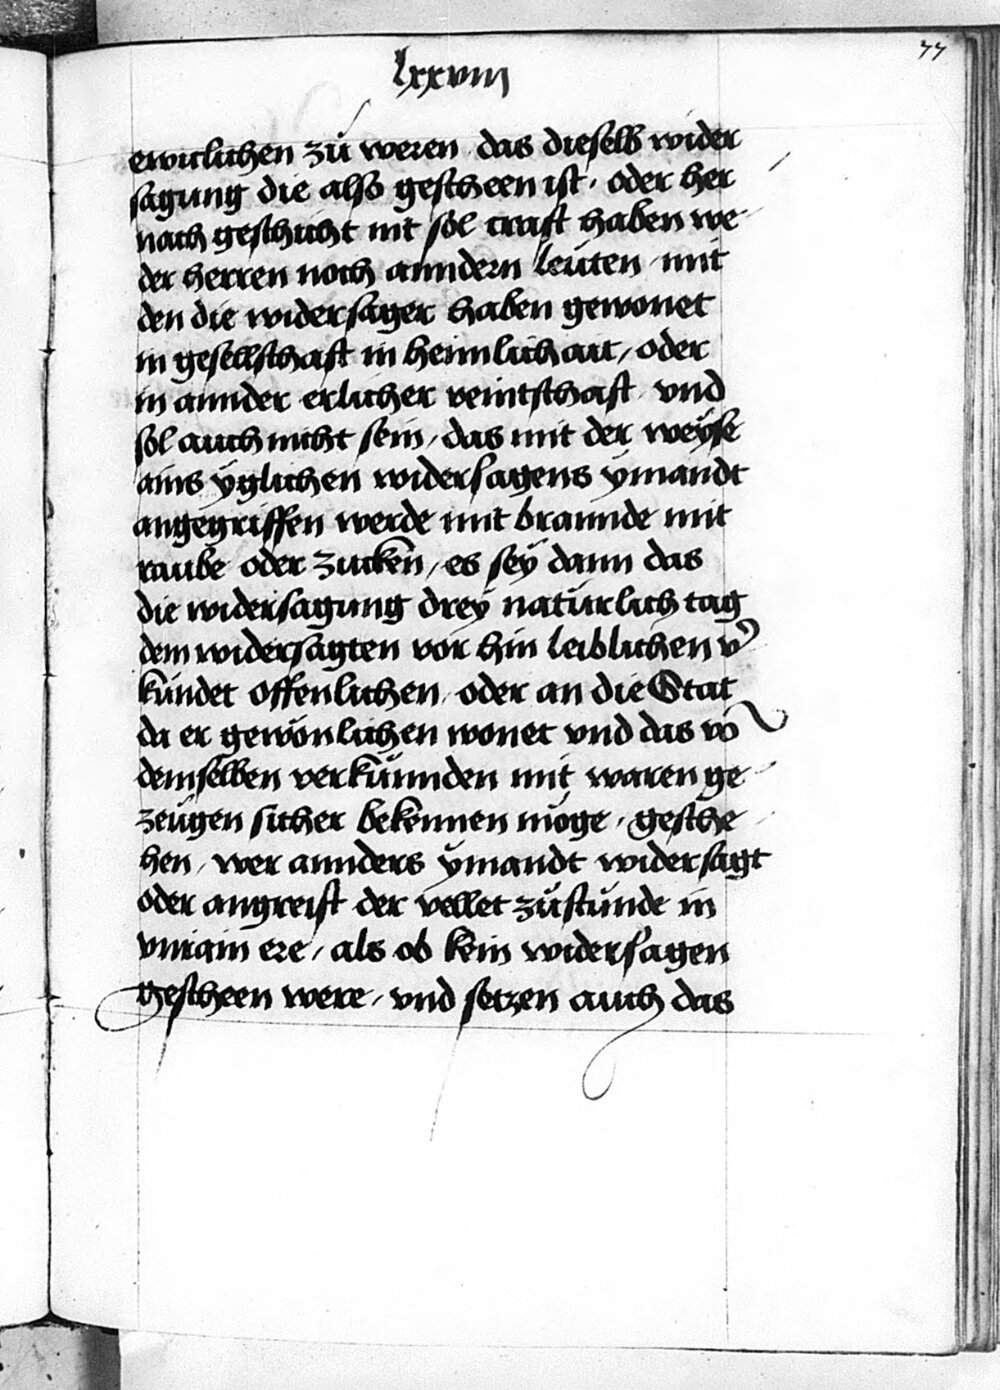 lxxviii
77
ewiclichen zů weren das dieselb wider
sagung die also gescheen ist, oder her
nach geschicht nit sol craft haben we-
der herren noch anndern leüten mit
den die widersager haben gewonet
in gesellschaft in heimlichait, oder
in annder erlicher veintschaft vnd
sol auch nicht sein, das mit der weÿse
ains ÿglichen widersagens ÿmandt
angegriffen werde mit brannde mit
raube oder zucken, es seÿ dann das
die widersagung dreÿ natürlich tag
dem widersagten vor hin leiblichen v᾽
kündet offenlichen, oder an die Stat
da er gewönlichen wonet vnd das vō
demselben verkünnden mit waren ge-
zeügen sicher bekennen möge, gesche-
hen, wer annders ÿmandt widersagt
oder angreift der vellet zůstunde in
vnnain ere, als ob kein widersagen
gescheen were, vnd setzen auch das